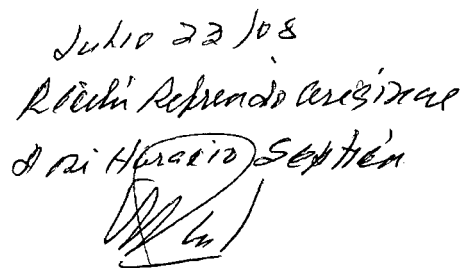 Julio 22/08
Recibí Refrendo Original
Horacio Septién